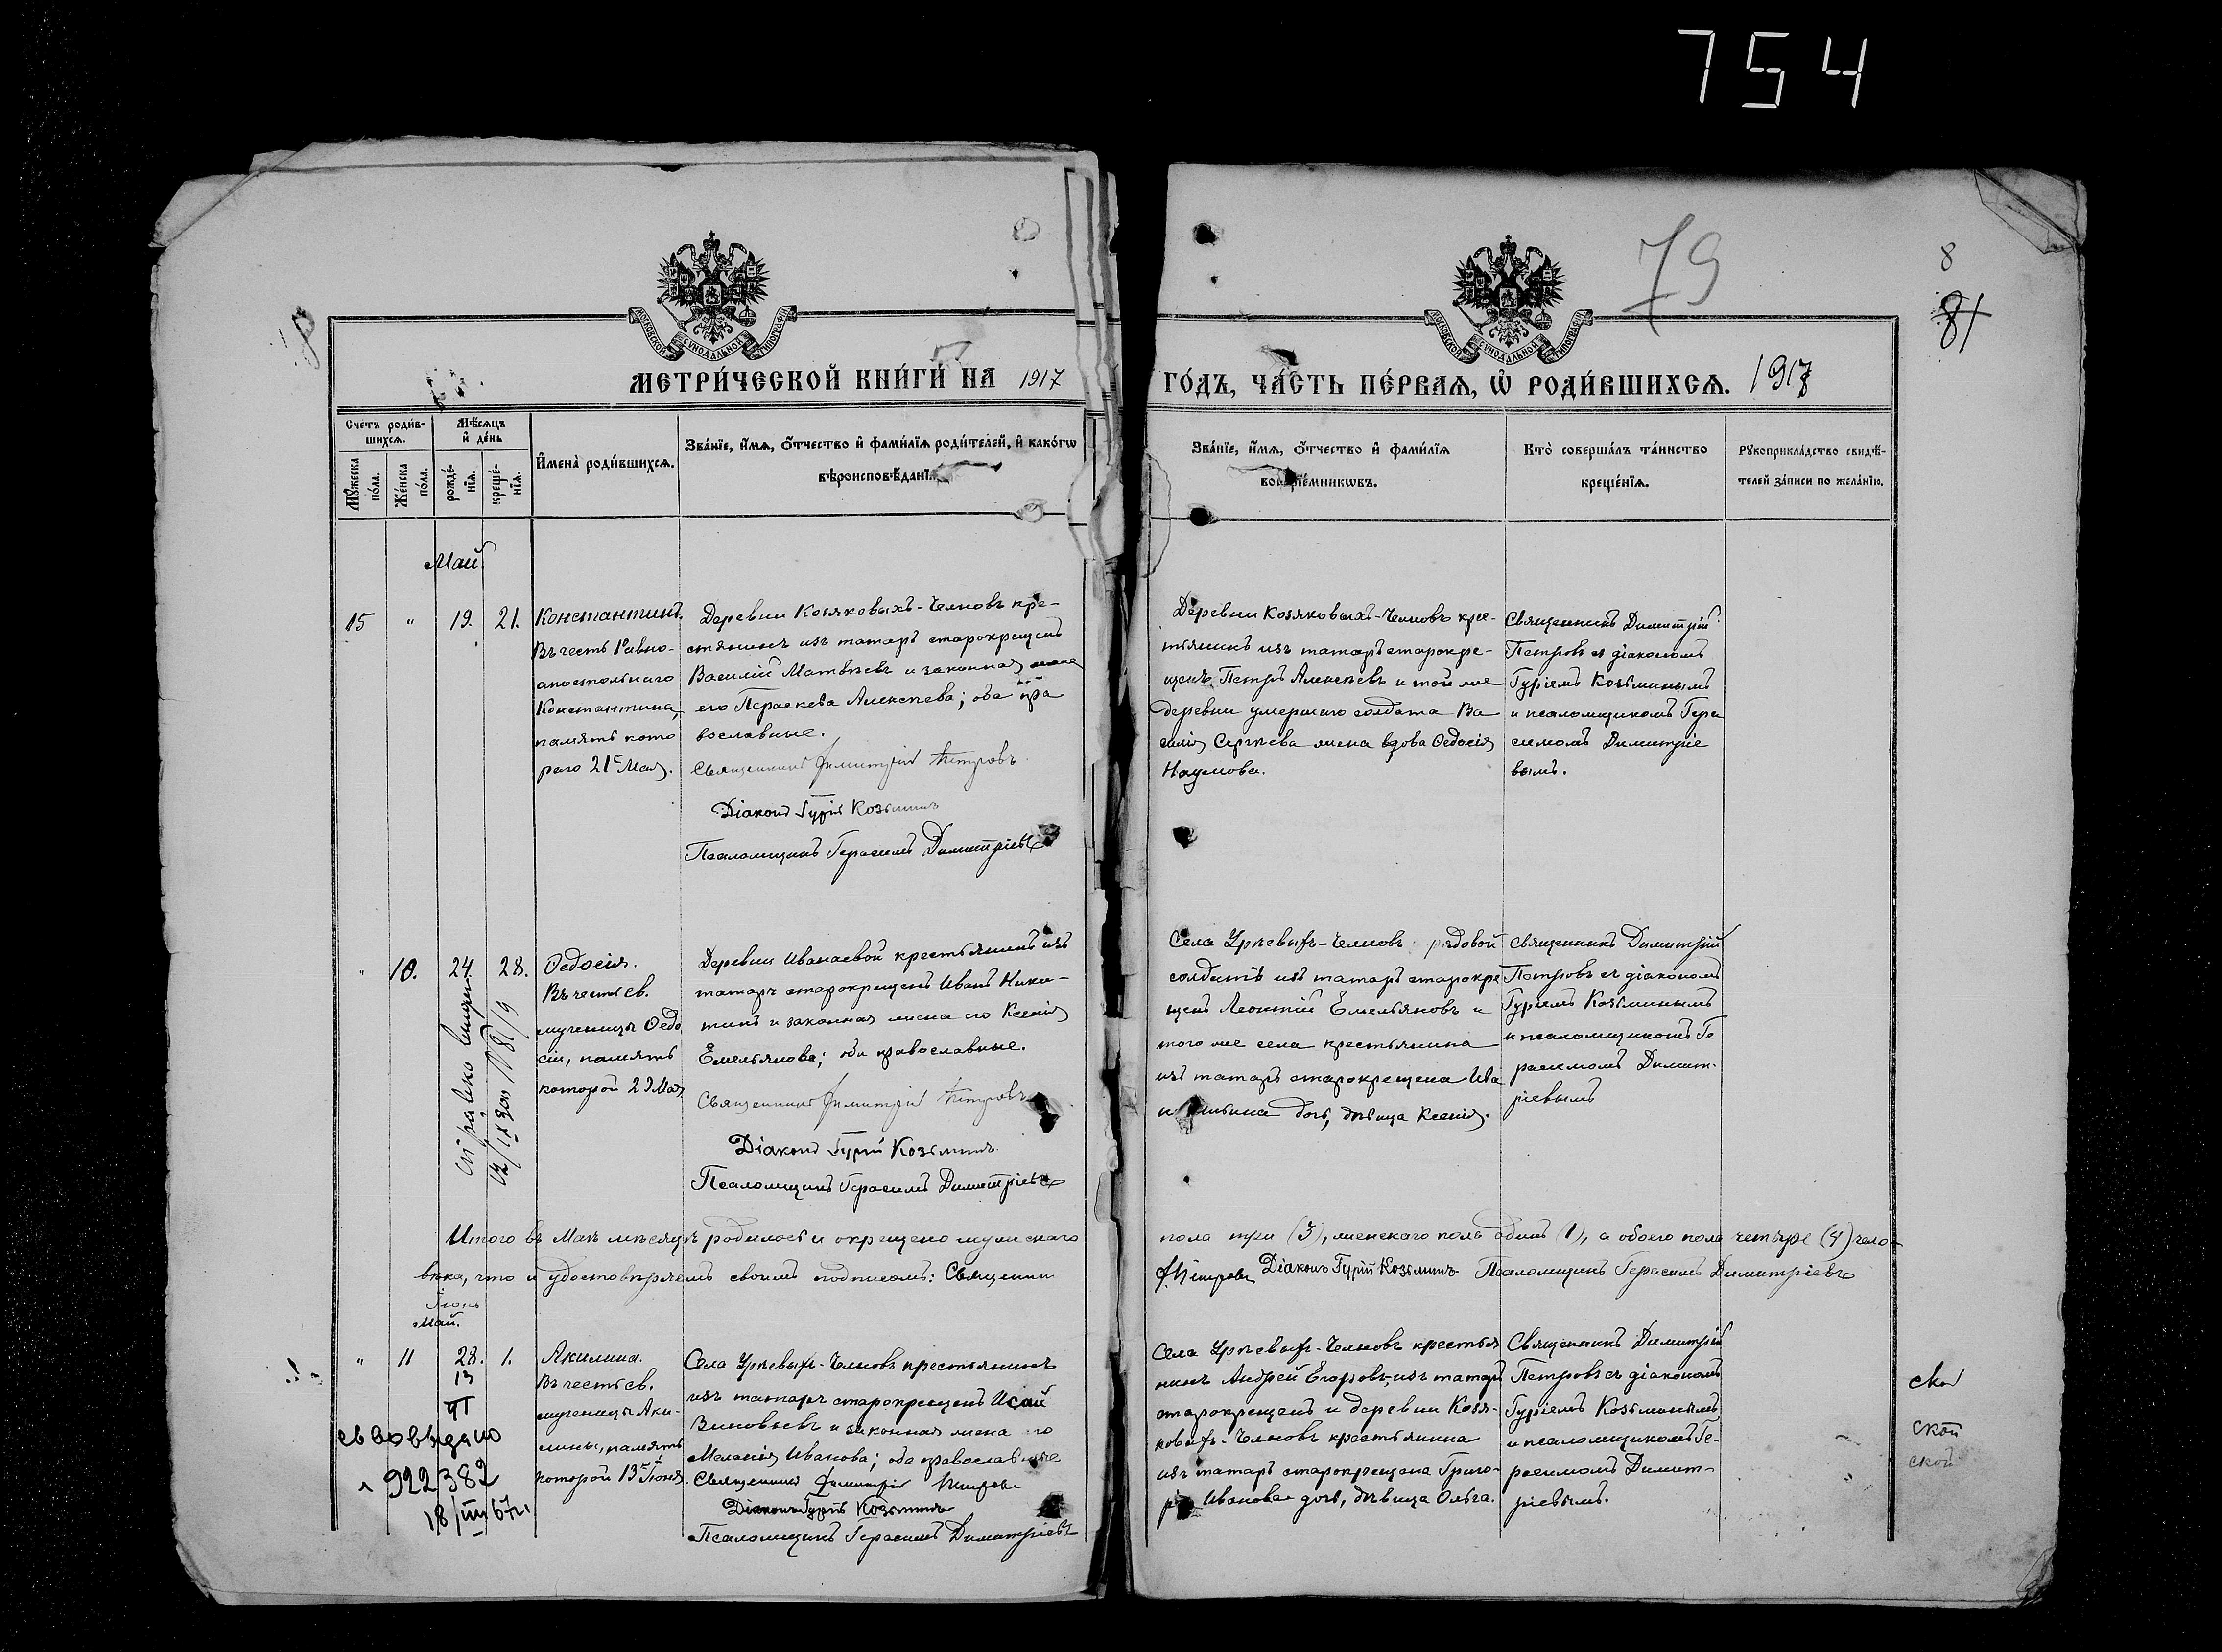 754
79
8
81
МОСКОВСКОЙ СѴНОДАЛЬНОЙ ТИПОГРАФІИ
МОСКОВСКОЙ СѴНОДАЛЬНОЙ ТИПОГРАФІИ
МЕТРИ́ЧЕСКОЙ КНИ́ГИ НА 1917
ГО́ДЪ, ЧА́СТЬ ПЕ́РВАѦ, Ѡ҆ РОДИ́ВШИХСѦ. 1917
Сче́тъ роди́в-
шихсѧ.
Мѣ́сѧцъ
и҆ де́нь
Мꙋ́жеска
по́ла.
Же́нска
по́ла.
рожде́-
нїѧ.
креще́-
нїѧ.
И҆мена̀ роди́вшихсѧ.
Зва́нїе, и҆́мѧ, ѻ҆́тчество и҆ фами́лїѧ роди́телей, и҆ како́гѡ
вѣроисповѣ́данїѧ.
Зва́нїе, и҆́мѧ, ѻ҆́тчество и҆ фами́лїѧ
воспрїе́мникѡвъ.
Кто̀ соверша́лъ та́инство
креще́нїѧ.
Рꙋкоприкла́дство свидѣ́-
телей за́писи по жела́нїю.
Май.
15 " 19. 21.
Константинъ.
Въ честь Равно-
апостольнаго
Константина,
память кото
раго 21го Мая.
Деревни Козяковыхъ-Челновъ кре-
стьянинъ изъ татаръ старокрещенъ
Василій Матвѣевъ и законная жена
его Параскева Алексѣева; оба пра
вославные.
Священникъ Димитрій Петровъ
Діаконъ Гурій Козьминъ
Псаломщикъ Герасимъ Димитріевъ
Деревни Козяковыхъ-Челновъ крес-
тьянинъ изъ татаръ старокре-
щенъ Петръ Алексѣевъ и той же
деревни умершаго солдата Ва
силія Сергѣева жена вдова Ѳедосія
Наумова.
Священникъ Димитрій
Петровъ съ діакономъ
Гуріемъ Козьминымъ
и псаломщикомъ Гера
симомъ Димитріе
вымъ.
" 10. 24. 28.
Ѳедосія.
Въ честь св.
мученицы Ѳедо
сіи, память
которой 29 Мая
Деревни Иванаевой крестьянинъ изъ
татаръ старокрещенъ Иванъ Ники-
тинъ и законная жена его Ксенія
Емельянова; оба православные.
Священникъ Димитрій Петровъ
Діаконъ Гурій Козьминъ
Псаломщикъ Герасимъ Димитріевъ
Села Урѣевыхъ-Челновъ рядовой
солдатъ изъ татаръ старокре
щенъ Леонтій Емельяновъ и
того же села крестьянина
изъ татаръ старокрещена Ива
дочь, дѣвица Ксенія.
Священникъ Димитрій
Петровъ съ діакономъ
Гуріемъ Козьминымъ
и псаломщикомъ Ге
расимомъ Димит-
ріевымъ
Итого въ Маѣ мѣсяцѣ родилось и окрещено мужскаго
пола три (3), женскаго пола одинъ (1), а обоего пола четыре (4) чело-
вѣка, что и удостовѣряемъ своимъ подписомъ: Священникъ
Д. Петровъ Діаконъ Гурій Козьминъ Псаломщикъ Герасимъ Димитріевъ
Іюнь
Май.
" 11 28. 1.
13
VI
922382
18/III 67 г.
Акилина.
Въ честь св.
мученицы Аки-
лины, память
которой 13го Іюня.
Села Урѣевыхъ-Челновъ крестьянинъ
изъ татаръ старокрещенъ Исай
Зиновьевъ и законная жена его
Меланія Иванова; оба православные
Священникъ Димитрій Петровъ
Діаконъ Гурій Козьминъ
Псаломщикъ Герасимъ Димитріевъ
Села Урѣевыхъ-Челновъ крестья
нинъ Андрей Егоровъ, изъ татаръ
старокрещенъ и деревни Козя-
ковыхъ-Челновъ крестьянина
изъ татаръ старокрещена Григо-
рія Иванова дочь, дѣвица Ольга.
Священникъ Димитрій
Петровъ съ діакономъ
Гуріемъ Козьминымъ
и псаломщикомъ Ге-
расимомъ Димит-
ріевымъ.
ской
ской